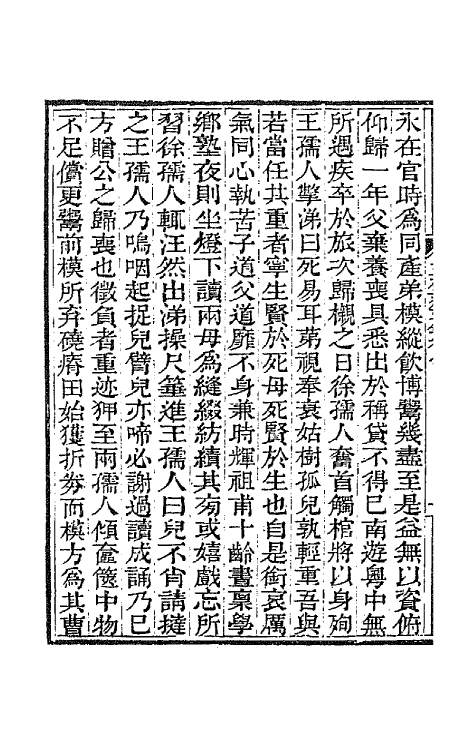 永在官時為同產弟模縱飲博鬻幾盡至是益無以資俯
仰歸一年父棄養喪具悉出於稱貸不得已南遊粵中無
所遇疾卒於旅次歸櫬之日徐孺人奮首觸棺將以身殉
王孺人擥涕曰死易耳苐視奉衰姑樹孤兒孰輕重吾與
若當任其重者寧生賢於死毋死賢於生也自是銜哀厲
氣同心執苦子道父道靡不身兼時輝祖甫十齡晝稟學
鄉塾夜則坐燈下讀兩母為縫綴紡績其旁或嬉戲忘所
習徐孺人輒汪然出涕操尺箠進王孺人曰兒不肖請撻
之王孺人乃嗚咽起捉兒臂兒亦啼必謝過讀成誦乃已
方贈公之歸喪也徵負者重迹狎至兩孺人傾奩篋中物
不足償更鬻前模所弃磽瘠田始獲折券而模方為其曹